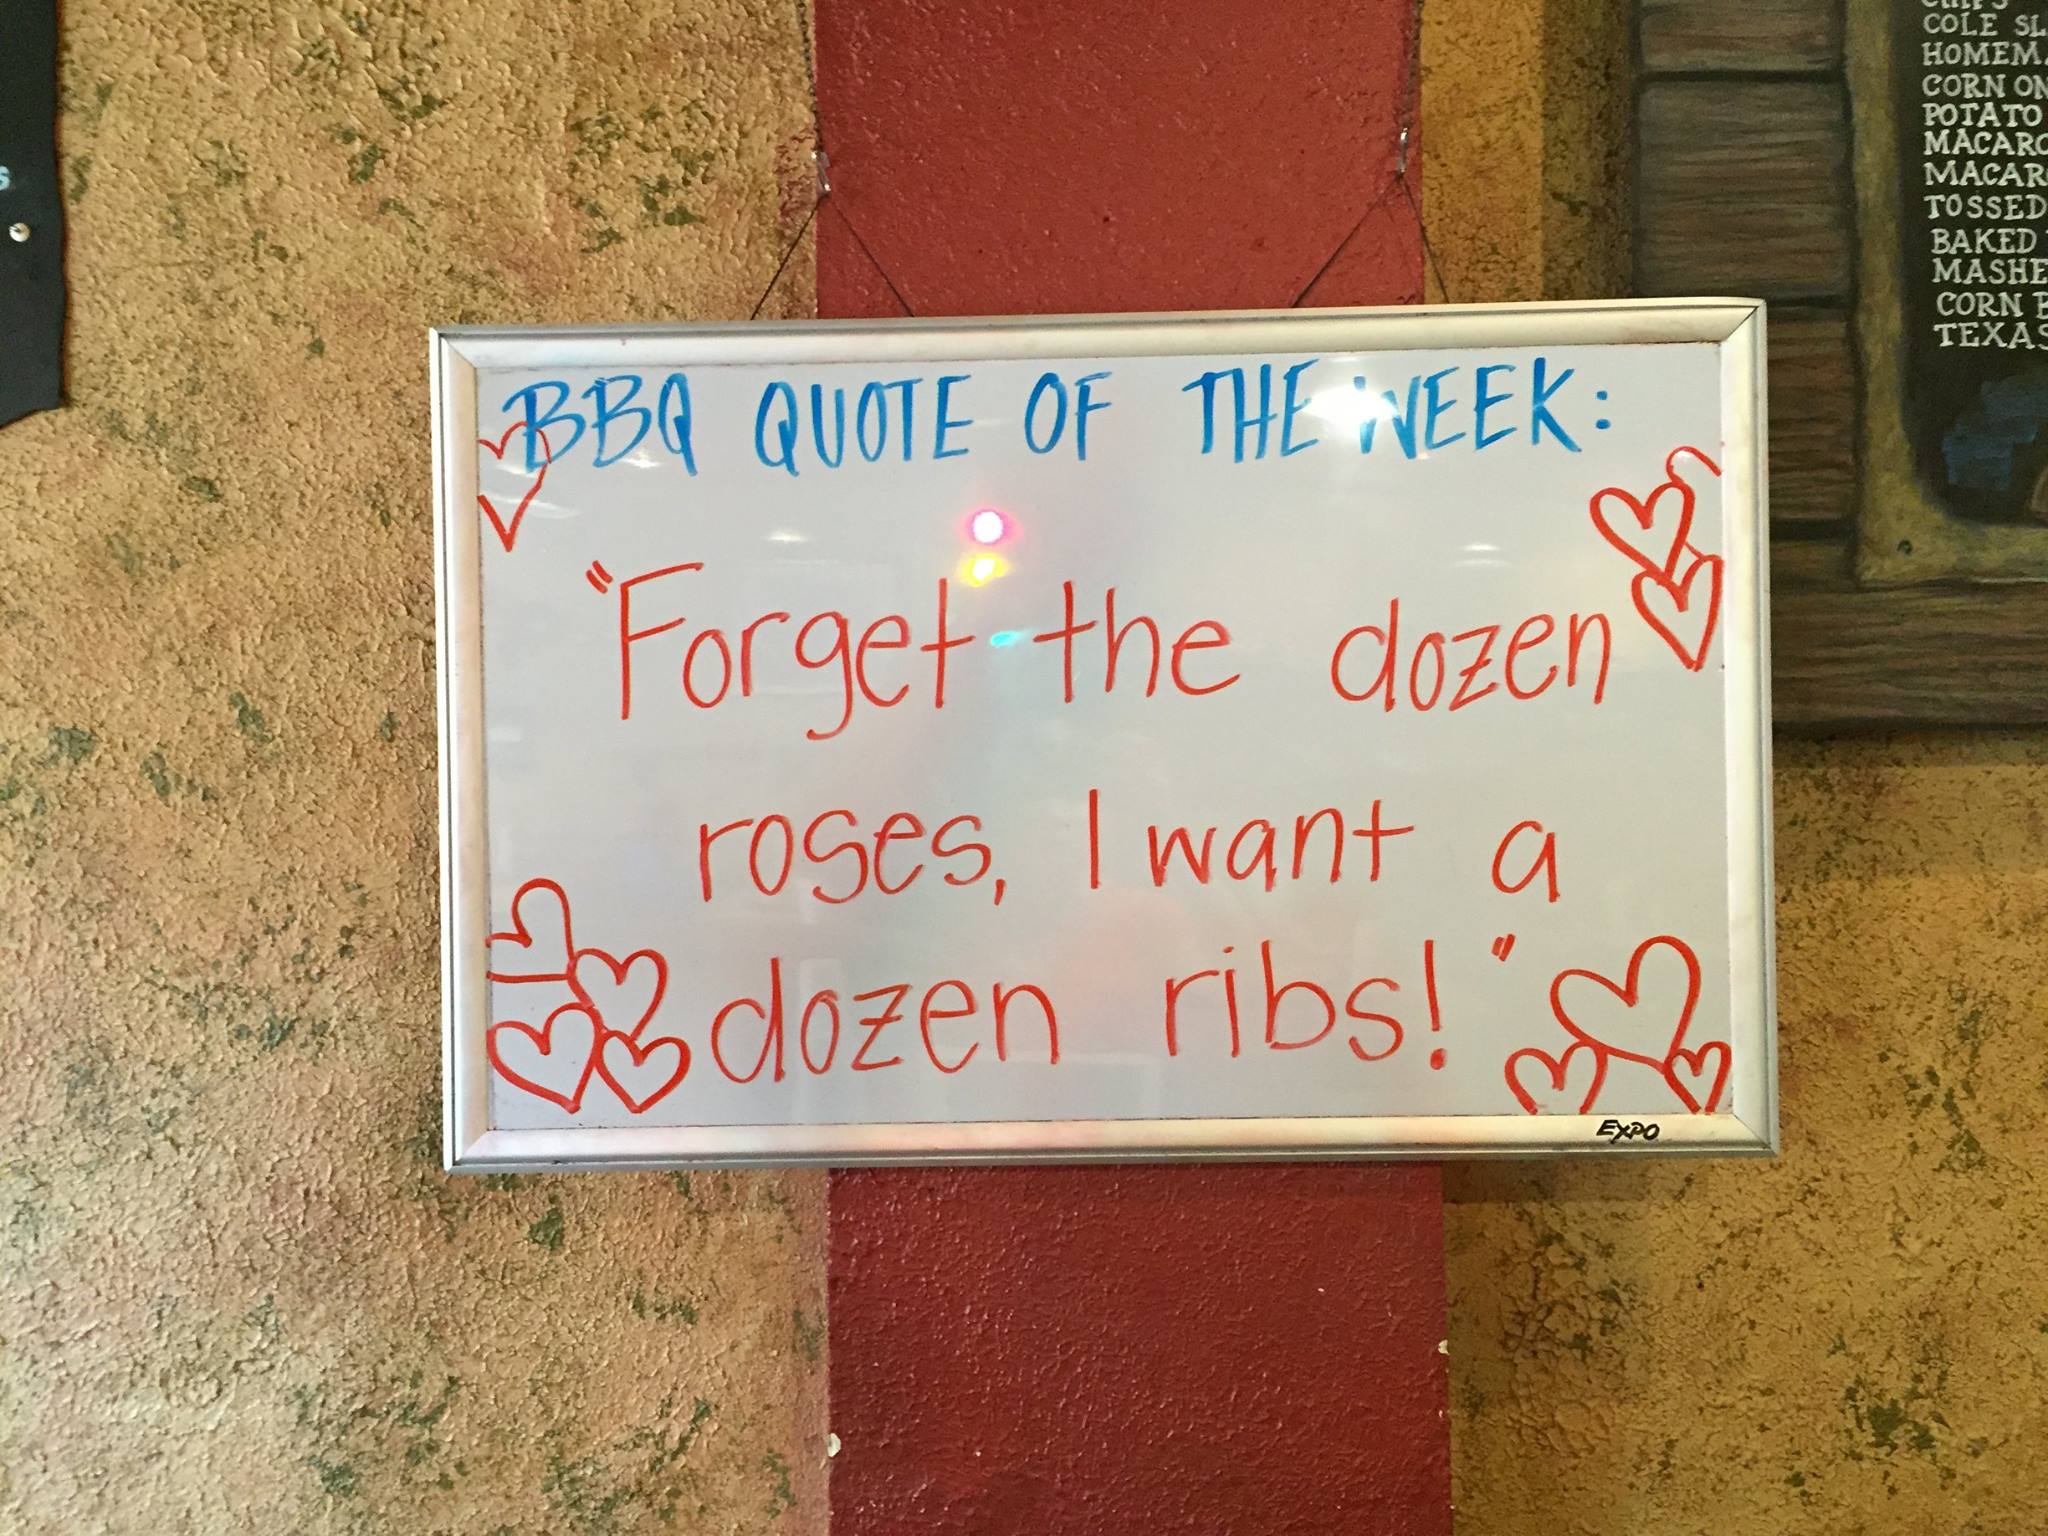 BBQ QUOTE OF THE WEEK:
"Forget the dozen
roses, I want a
dozen ribs!"
EXPO
COLE SL
HOMEM
CORN ON
POTATO
MACARO
MACAR
TOSSED
BAKED
MASHE
CORN B
TEXAS